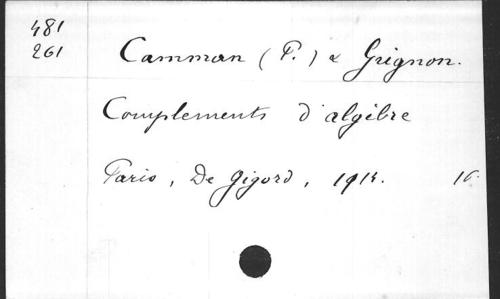 481
261
Camman (P.) & Grignon.
Complements d'algèbre
Paris, De Gigord, 1914. 16.